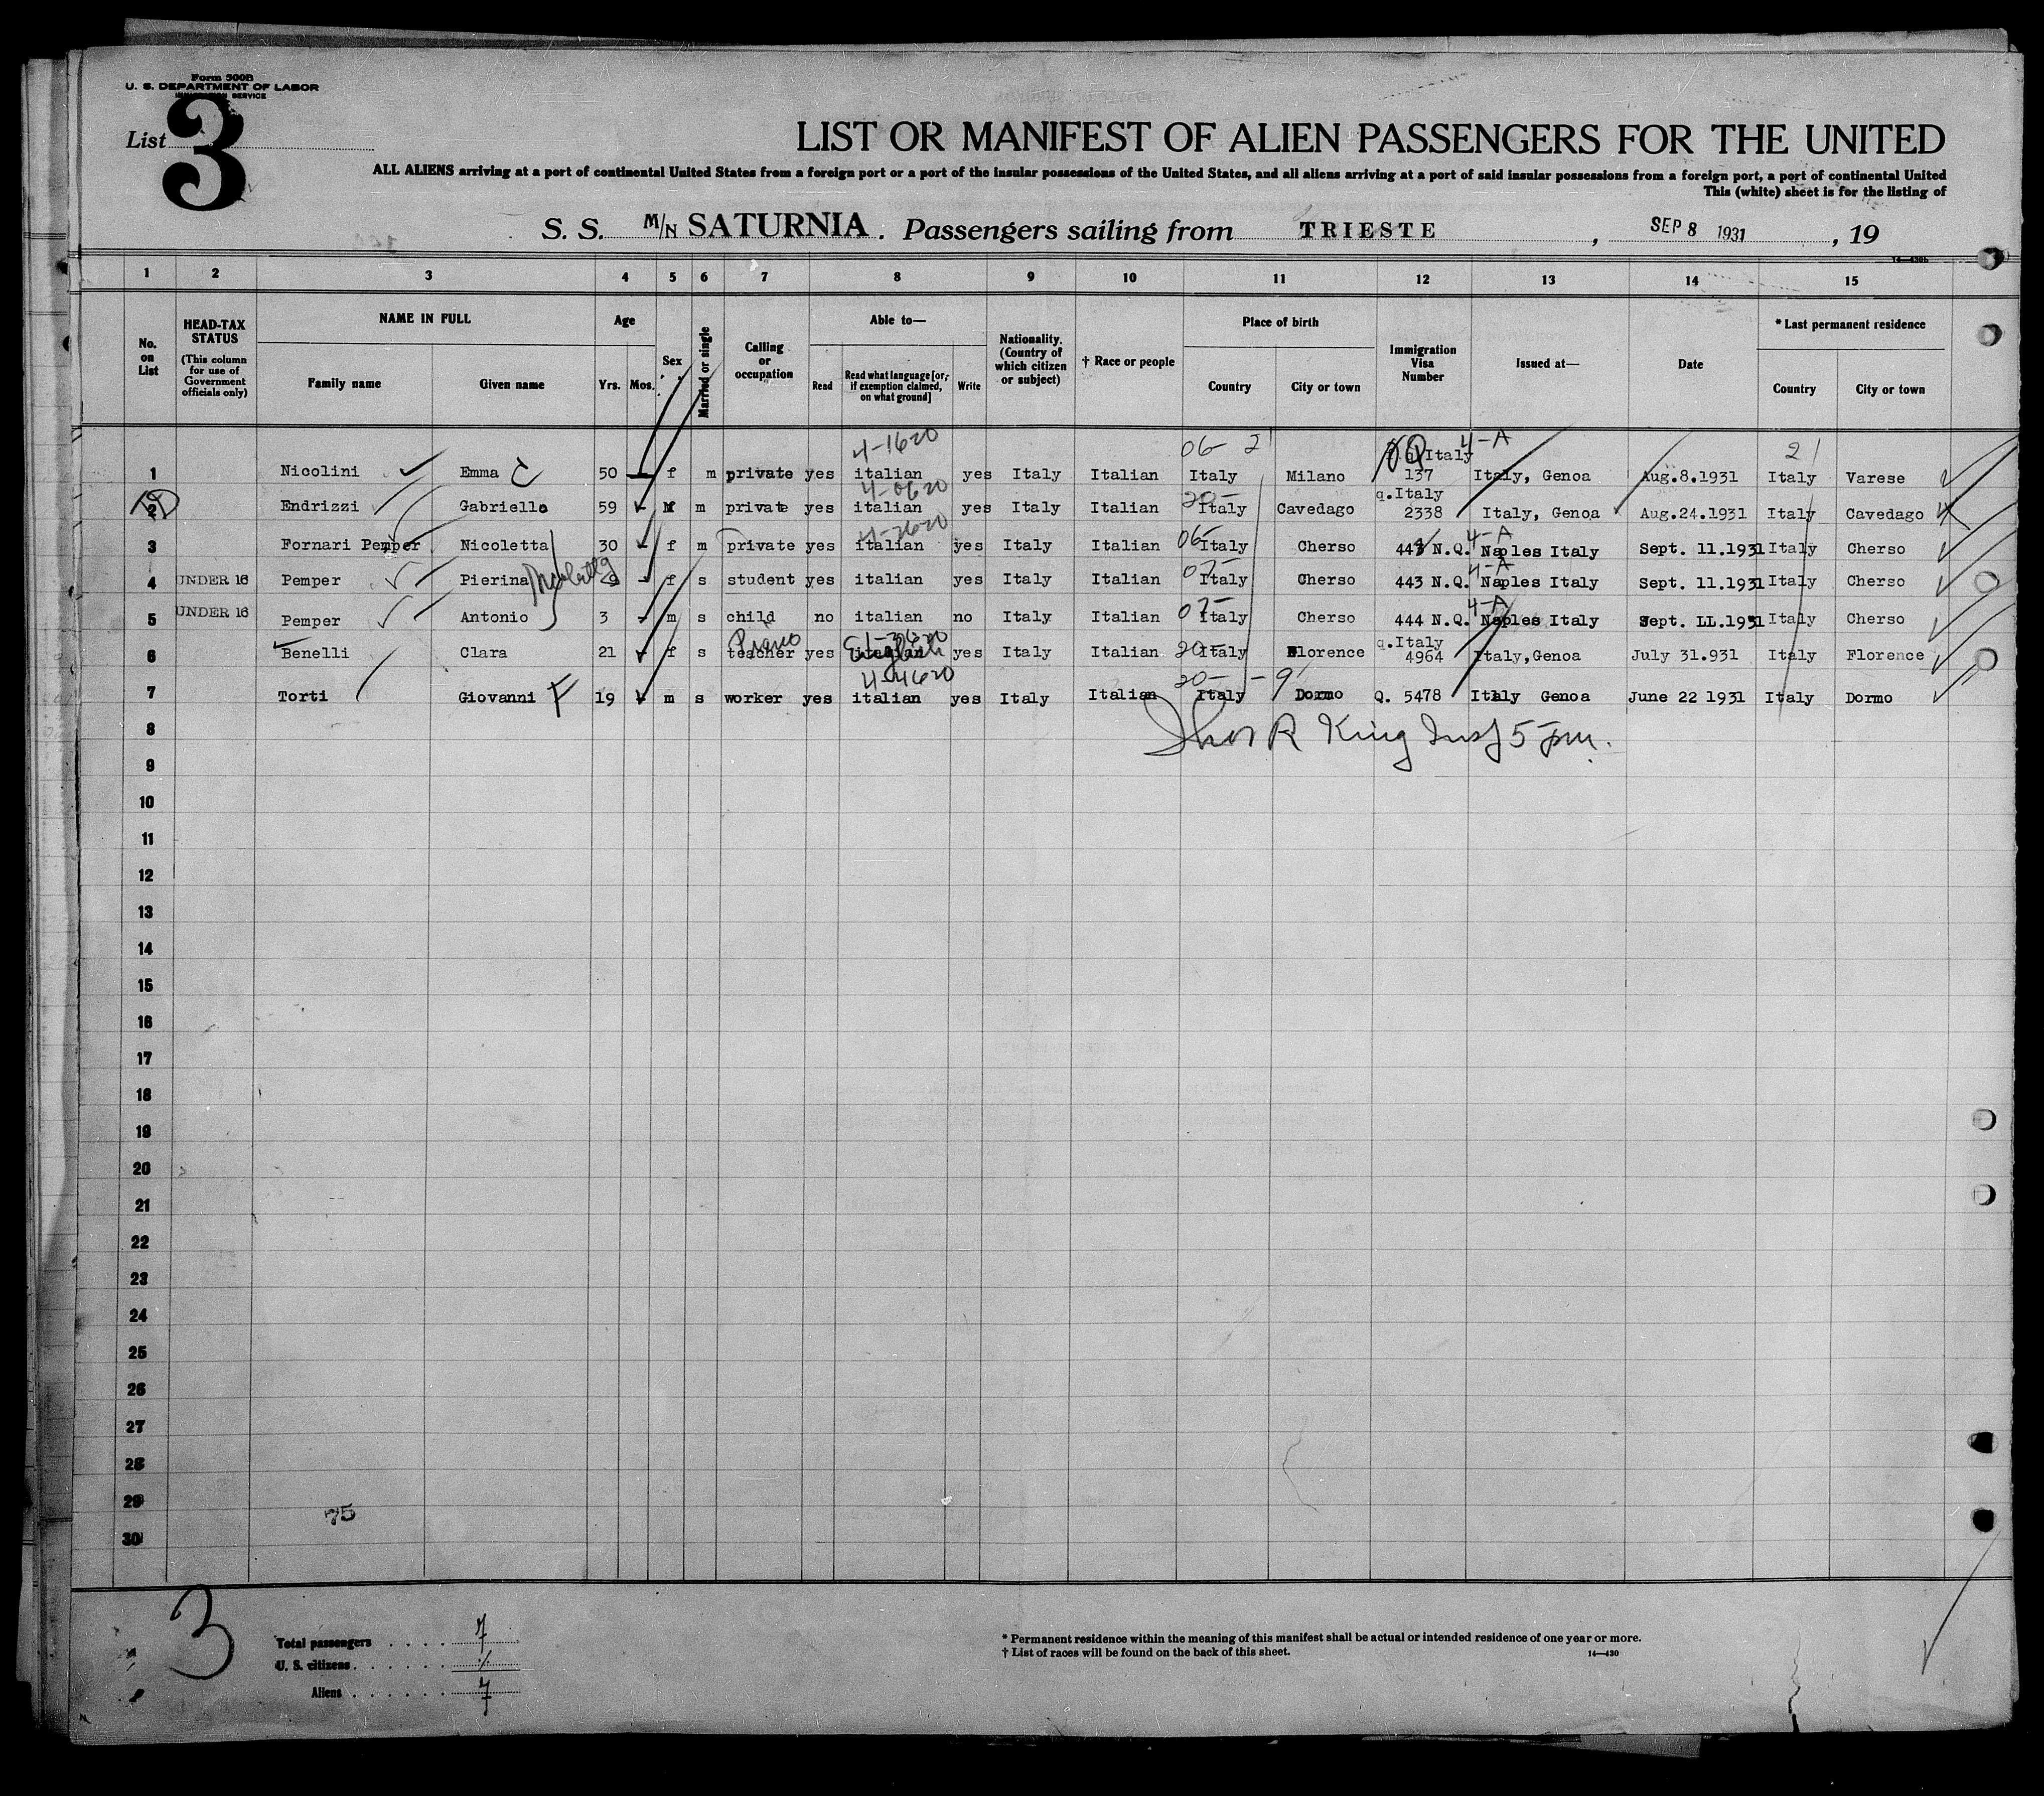 Form 500B
U. S. DEPARTMENT OF LABOR
IMMIGRATION SERVICE
List 3
LIST OR MANIFEST OF ALIEN PASSENGERS FOR THE UNITED
ALL ALIENS arriving at a port of continental United States from a foreign port or a port of the insular possessions of the United States, and all aliens arriving at a port of said insular possessions from a foreign port, a port of continental United
This (white) sheet is for the listing of
S. S. M/N SATURNIA. Passengers sailing from TRIESTE, SEP 8 1931, 19
1 2 3 4 5 6 7 8 9 10 11 12 13 14 15
No. on List
HEAD-TAX STATUS
(This column for use of Government officials only)
NAME IN FULL
Family name
Given name
Age
Yrs. Mos.
Sex
Married or single
Calling or occupation
Able to—
Read
Read what language [or, if exemption claimed, on what ground]
Write
Nationality. (Country of which citizen or subject)
† Race or people
Place of birth
Country
City or town
Immigration Visa Number
Issued at—
Date
* Last permanent residence
Country
City or town
4-1620 06- 21 4-A 21
1 Nicolini Emma 50 f m private yes italian yes Italy Italian Italy Milano 137 Italy, Genoa Aug.8.1931 Italy Varese
4-0620 20- q.Italy
2 Endrizzi Gabriello 59 m private yes italian yes Italy Italian Italy Cavedago 2338 Italy, Genoa Aug.24.1931 Italy Cavedago
4-2620 06- 4-A
3 Fornari Pemper Nicoletta 30 f m private yes italian yes Italy Italian Italy Cherso N.Q. Naples Italy Sept. 11.1931 Italy Cherso
07- 4-A
4 UNDER 16 Pemper Pierina f s student yes italian yes Italy Italian Italy Cherso 443 N.Q. Naples Italy Sept. 11.1931 Italy Cherso
07- 4-A
5 UNDER 16 Pemper Antonio 3 m s child no italian no Italy Italian Italy Cherso 444 N.Q. Naples Italy Sept. LL.1931 Italy Cherso
Piano English 20- q.Italy
6 Benelli Clara 21 f s teacher yes italian yes Italy Italian Italy Florence 4964 Italy,Genoa July 31.931 Italy Florence
4-4620 20- -9
7 Torti Giovanni F 19 m s worker yes italian yes Italy Italian Italy Dormo Q. 5478 Italy Genoa June 22 1931 Italy Dormo
8 R King Insp 5 pm.
9
10
11
12
13
14
15
16
17
18
19
20
21
22
23
24
25
26
27
28
29
75
30
3
Total passengers 7
U. S. citizens
Aliens 7
* Permanent residence within the meaning of this manifest shall be actual or intended residence of one year or more.
† List of races will be found on the back of this sheet.
14—430